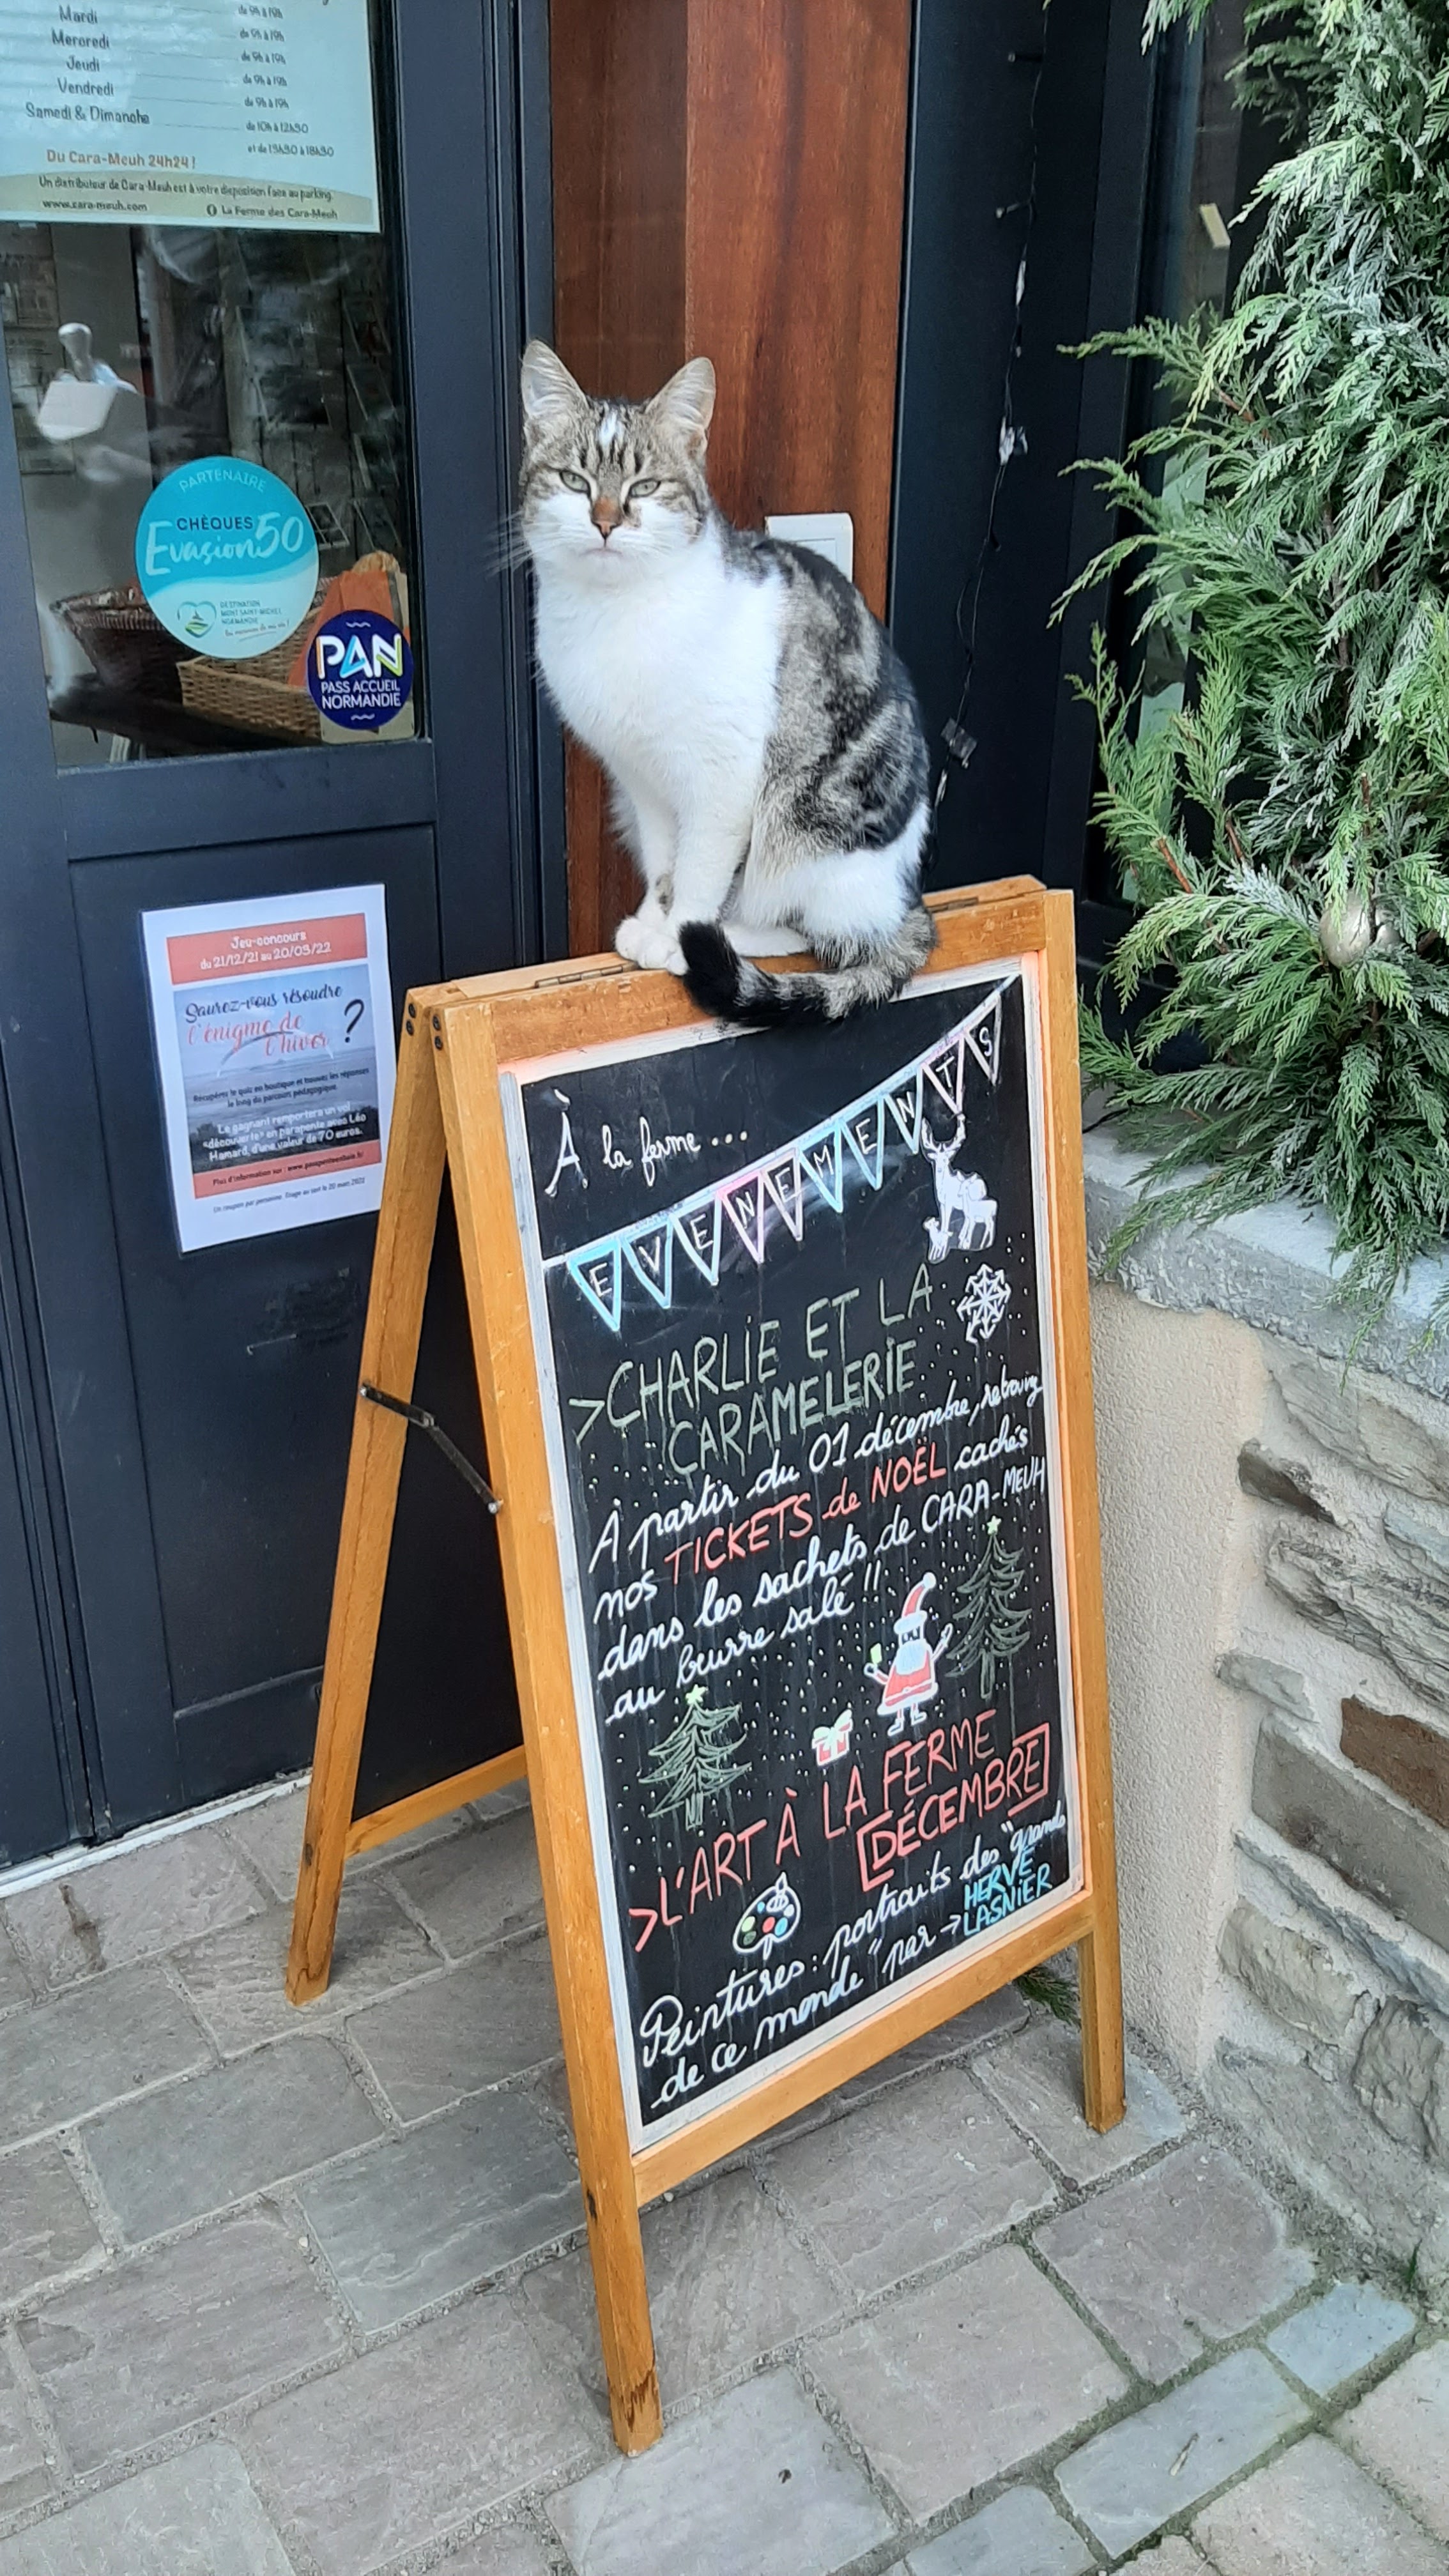 Mardi de 9h à 19h
Mercredi de 9h à 19h
Jeudi de 9h à 19h
Vendredi de 9h à 19h
Samedi & Dimanche de 10h à 12h30
et de 13h30 à 18h30
Du Cara-Meuh 24h24 !
Un distributeur de Cara-Meuh est à votre disposition face au parking.
www.cara-meuh.com La Ferme des Cara-Meuh
PARTENAIRE
CHÈQUES
Evasion50
DESTINATION
MONT SAINT-MICHEL
NORMANDIE
PAN
PASS ACCUEIL
NORMANDIE
Jeu-concours
du 21/12/21 au 20/03/22
Saurez-vous résoudre
l'énigme de
l'hiver ?
Récupérez le quiz en boutique et trouvez les réponses
le long du parcours pédagogique.
Le gagnant remportera un vol
«découverte» en parapente avec Léo
Hamard, d'une valeur de 70 euros.
Plus d'information sur :
À la ferme...
EVENEMENTS
>CHARLIE ET LA
CARAMELERIE
A partir du 01 décembre,
nos TICKETS de NOËL cachés
dans les sachets de CARA-MEUH
au beurre salé !!
>L'ART À LA FERME
[DÉCEMBRE]
Peintures : portraits des "grands
de ce monde" par → HERVÉ
LASNIER